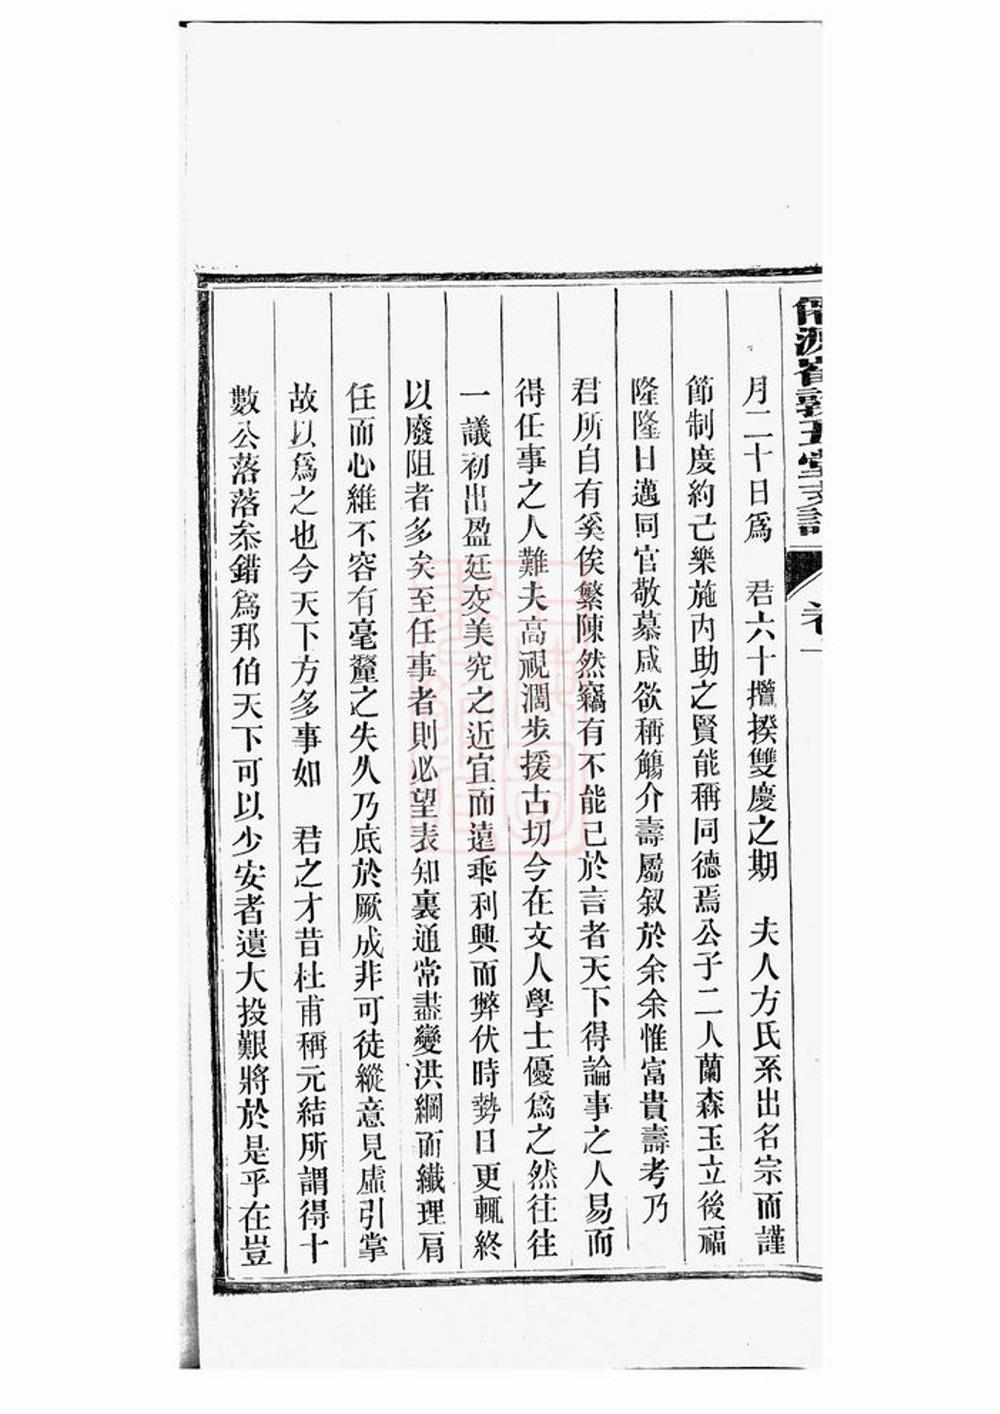 月二十日爲　君六十攬揆雙慶之期　夫人方氏系出名宗而謹
節制度約己樂施內助之賢能稱同德焉公子二人蘭森玉立後福
隆隆日邁同官敬慕咸欲稱觴介壽屬叙於余余惟富貴壽考乃
君所自有奚俟繁陳然竊有不能已於言者天下得論事之人易而
得任事之人難夫高視濶步援古切今在文人學士優爲之然往往
一議初出盈廷交美究之近宜而遠乖利興而弊伏時勢日更輒終
以廢阻者多矣至任事者則必望表知裏通常盡變洪綱而纖理肩
任而心維不容有毫釐之失久乃底於厥成非可徒縱意見虛引掌
故以爲之也今天下方多事如　君之才昔杜甫稱元結所謂得十
數公落落叅錯爲邦伯天下可以少安者遺大投艱將於是乎在豈